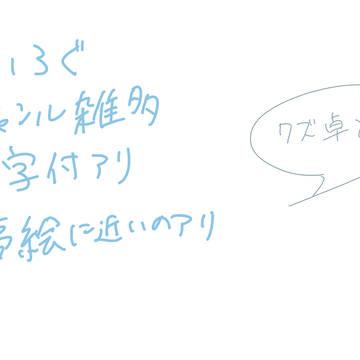 いろぐ
ャンル雑多
字付アリ
夢絵に近いのアリ
クズ卓